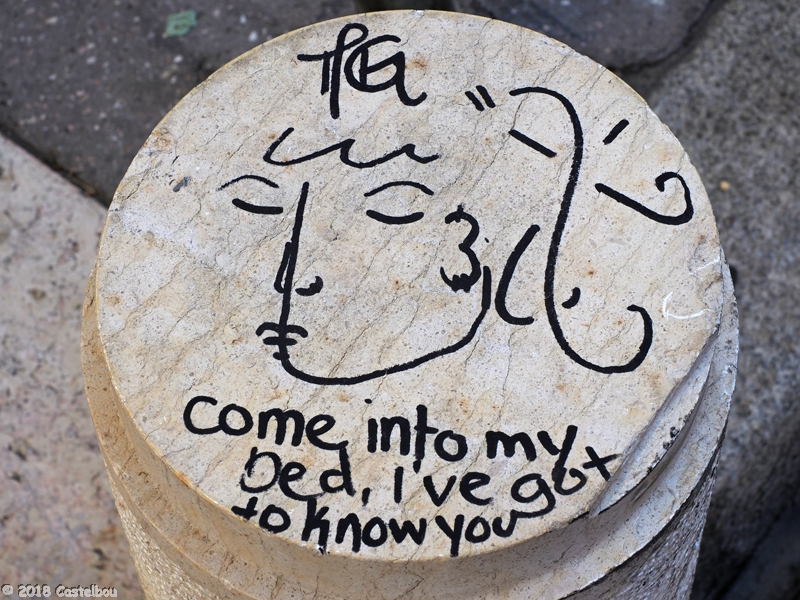 come into my
bed, I've got
to know you
© 2018 Castelbou